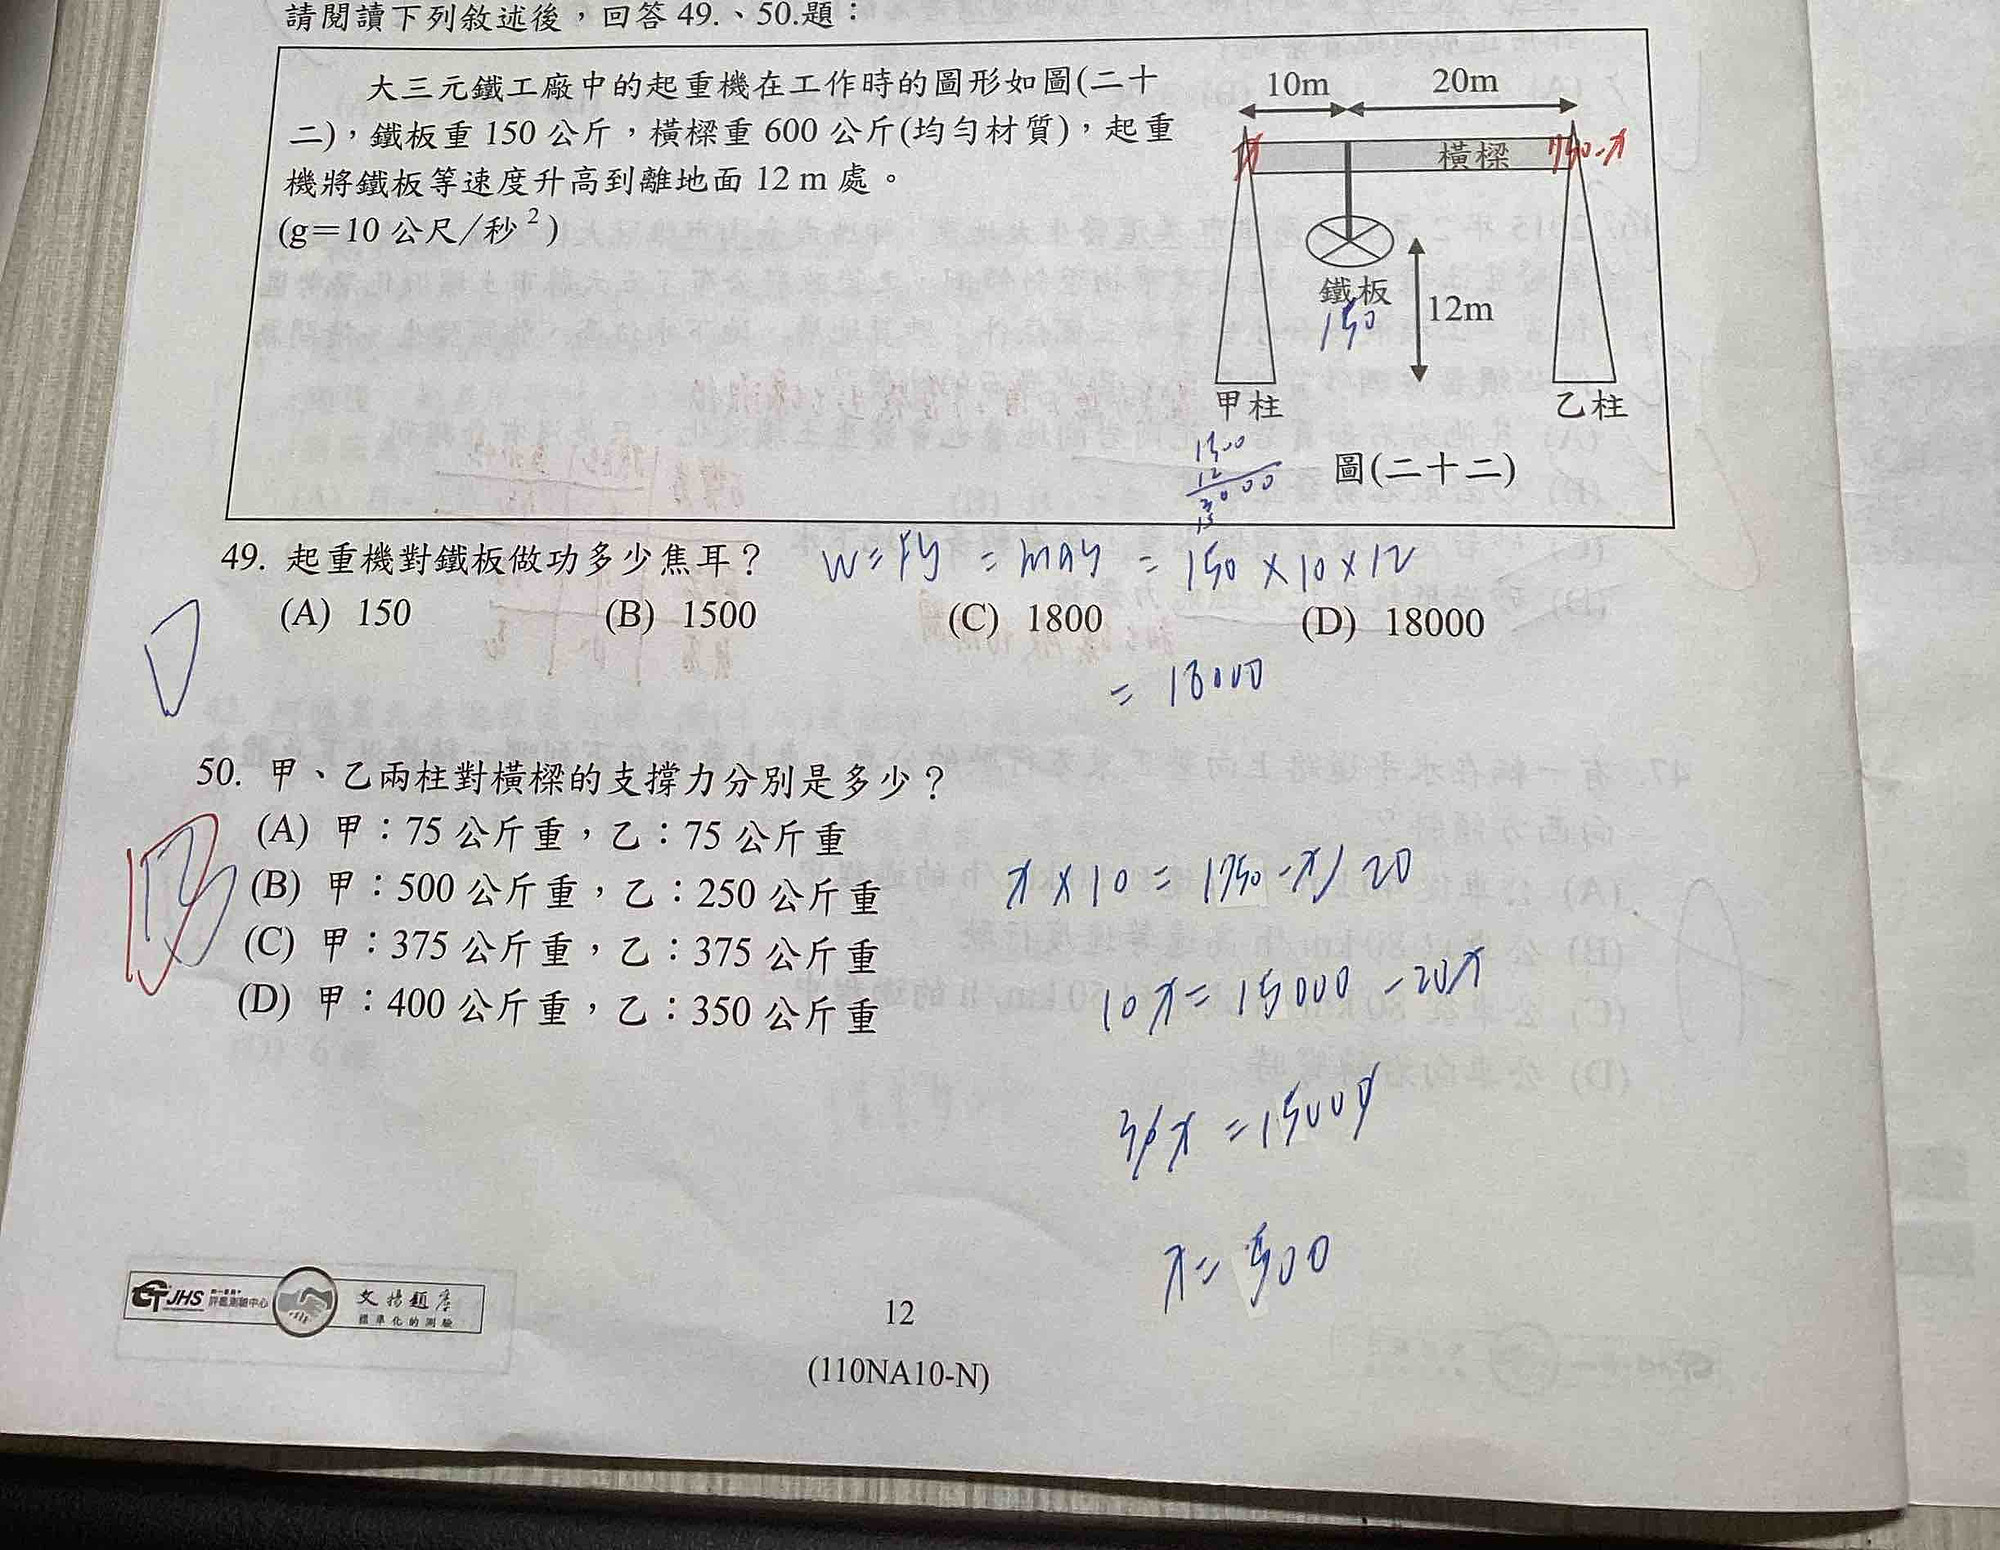 請閱讀下列敘述後，回答 49.、50.題：
大三元鐵工廠中的起重機在工作時的圖形如圖(二十
二)，鐵板重 150 公斤，橫樑重 600 公斤(均勻材質)，起重
機將鐵板等速度升高到離地面 12 m 處。
(g＝10 公尺／秒²)
10m 20m
x 橫樑 750-x
鐵板
150
12m
甲柱 乙柱
1500
12
3000
15
圖(二十二)
49. 起重機對鐵板做功多少焦耳？ W = Fy = may = 150 × 10 × 12
(A) 150 (B) 1500 (C) 1800 (D) 18000
= 18000
D
50. 甲、乙兩柱對橫樑的支撐力分別是多少？
(A) 甲：75 公斤重，乙：75 公斤重
(B) 甲：500 公斤重，乙：250 公斤重
(C) 甲：375 公斤重，乙：375 公斤重
(D) 甲：400 公斤重，乙：350 公斤重
x × 10 = (750 - x) 20
10x = 15000 - 20x
30x = 15000
x = 500
JHS 評鑑測驗中心
文揚題庫
標準化的測驗
12
(110NA10-N)